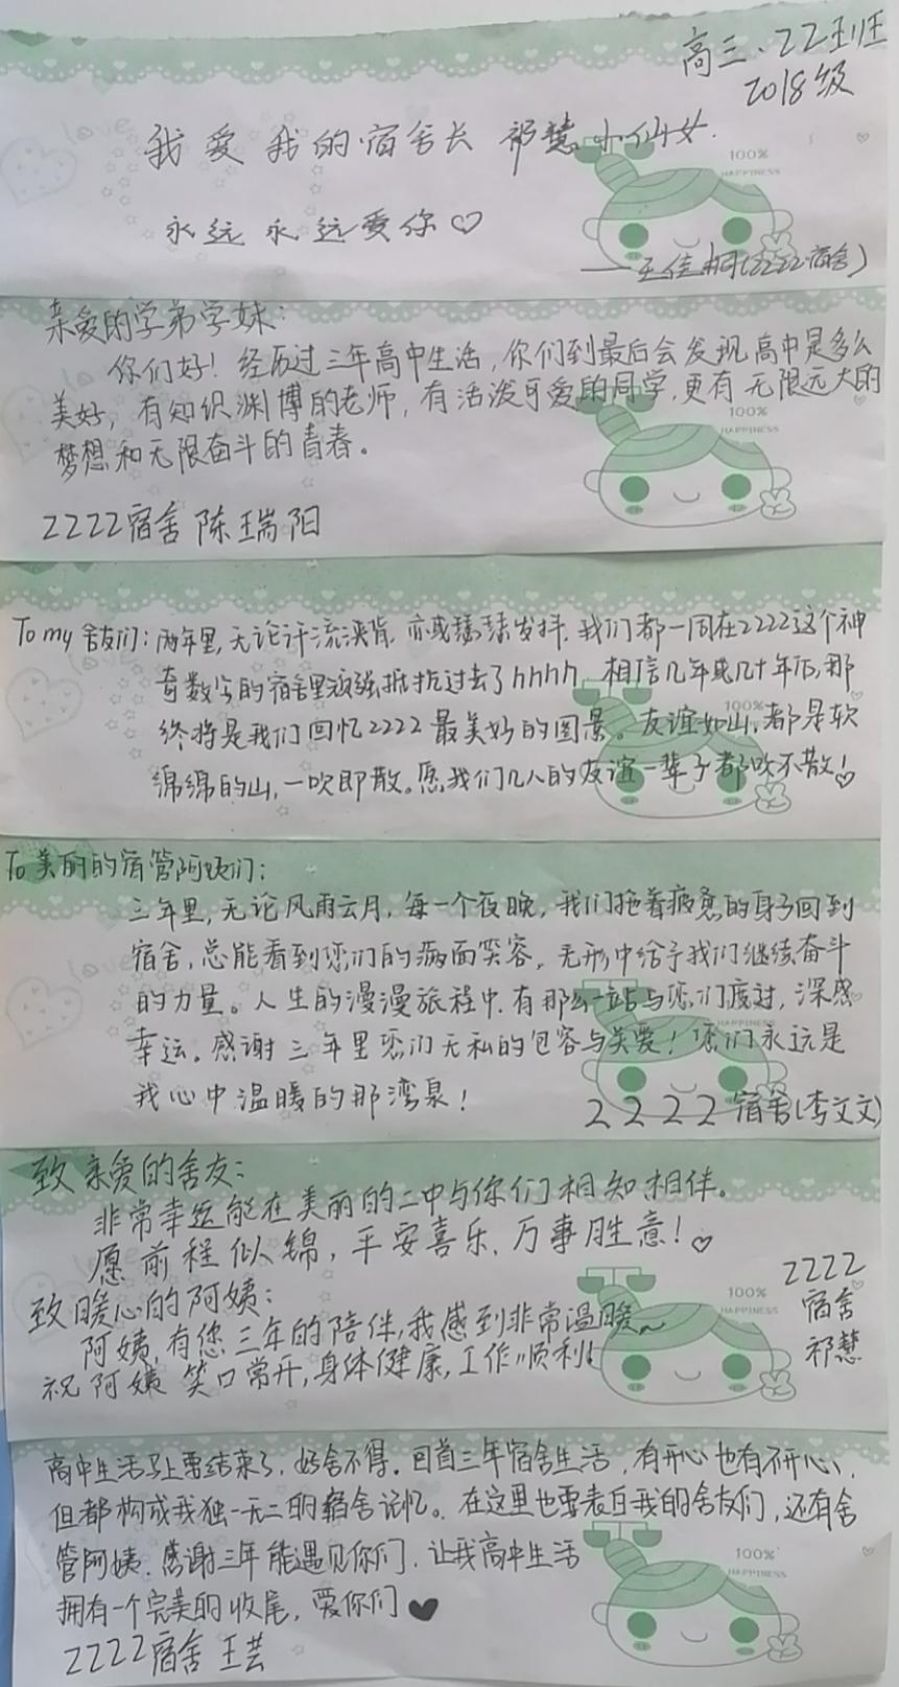 高三·22班
2018级
我爱我的宿舍长 祁慧小仙女.
永远永远爱你♡
100%
HAPPINESS
——王佳(2222宿舍)
亲爱的学弟学妹:
你们好!经历过三年高中生活,你们到最后会发现高中是多么
美好,有知识渊博的老师,有活泼可爱的同学,更有无限远大的
梦想和无限奋斗的青春。
100%
HAPPINESS
2222宿舍 陈瑞阳
To my 舍友们:两年里,无论汗流浃背,亦或瑟瑟发抖,我们都一同在2222这个神
奇数字的宿舍里顽强抵抗过去了hhhh,相信几年或几十年后,那
终将是我们回忆2222最美好的图景。友谊如山,都是软
100%
绵绵的山,一吹即散。愿我们几人的友谊一辈子都吹不散!♡
To 美丽的宿管阿姨们:
三年里,无论风雨云月,每一个夜晚,我们拖着疲惫的身子回到
宿舍,总能看到您们的满面笑容,无形中给予我们继续奋斗
的力量。人生的漫漫旅程中,有那么一站与您们度过,深感
幸运。感谢三年里您们无私的包容与关爱!您们永远是
我心中温暖的那湾泉!
2222宿舍(李文文)
致亲爱的舍友:
非常幸运能在美丽的二中与你们相知相伴。
愿前程似锦,平安喜乐,万事胜意!♡
致暖心的阿姨:
阿姨,有您三年的陪伴,我感到非常温暖~
祝阿姨笑口常开,身体健康,工作顺利!
2222
宿舍
祁慧
100%
HAPPINESS
高中生活马上要结束了,好舍不得。回首三年宿舍生活,有开心也有不开心,
但都构成我独一无二的宿舍记忆。在这里也要表白我的舍友们,还有舍
管阿姨,感谢三年能遇见你们,让我高中生活
拥有一个完美的收尾,爱你们♥
100%
HAPPINESS
2222宿舍 王芸